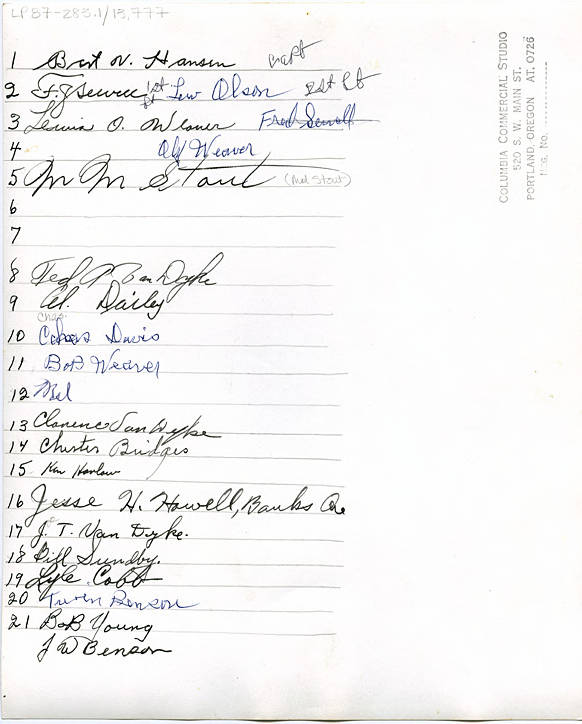 LP87-283.1/13,777
1 Bert V. Hansen Capt
2 F. J. Sewell 1st Lt Lew Olson 2st Lt
3 O. Weaver Fred Sewell
4 Olf Weaver
5 M M Stout (Mel Stout)
6
7
8 Ted A Van Dyke
9 Al. Dailey
Chas.
10 Davis
11 BoB Weaver
12 Mel
13 Clarence Van Dyke
14 Chester Bridges
15 Ken Harlow
16 Jesse H. Howell, Banks Ore
17 J. T. Van Dyke.
18 Bill Sundby.
19 Lyle Cobb
20 Benson
21 BoB Young
J W Benson
COLUMBIA COMMERCIAL STUDIO
520 S. W. MAIN ST.
PORTLAND, OREGON AT. 0726
NEG. No.